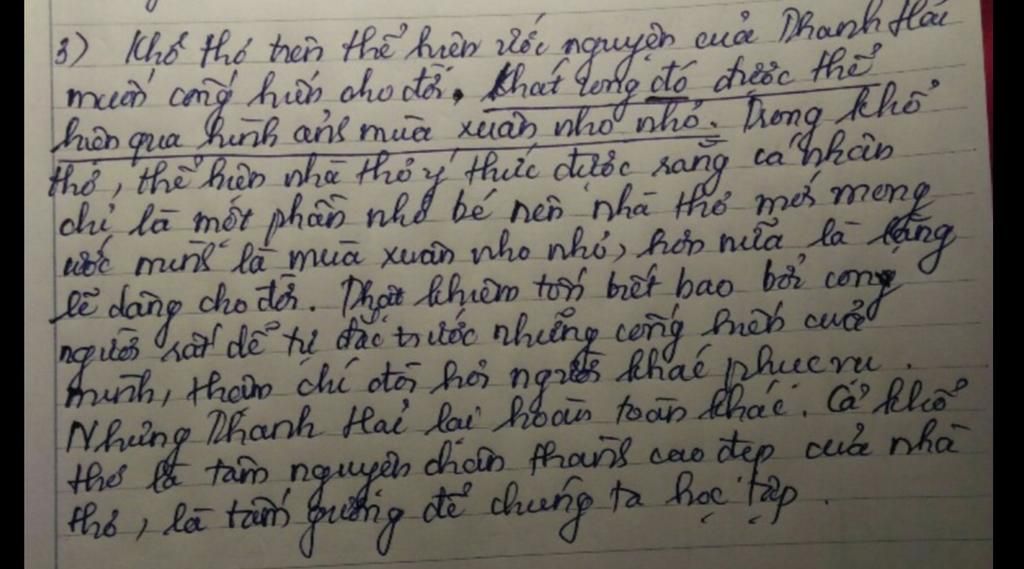 3) Khổ thơ trên thể hiện ước nguyện của Thanh Hải
muốn cống hiến cho đời. Khát vọng đó được thể
hiện qua hình ảnh mùa xuân nho nhỏ. Trong khổ
thơ, thể hiện nhà thơ ý thức được rằng cá nhân
chỉ là một phần nhỏ bé nên nhà thơ mới mong
ước mình là mùa xuân nho nhỏ, hơn nữa là lặng
lẽ dâng cho đời. Thật khiêm tốn biết bao bởi con
người rất dễ tự đắc trước những cống hiến của
mình, thậm chí đòi hỏi người khác phục vụ.
Nhưng Thanh Hải lại hoàn toàn khác. Cả khổ
thơ là tâm nguyện chân thành cao đẹp của nhà
thơ, là tấm gương để chúng ta học tập.